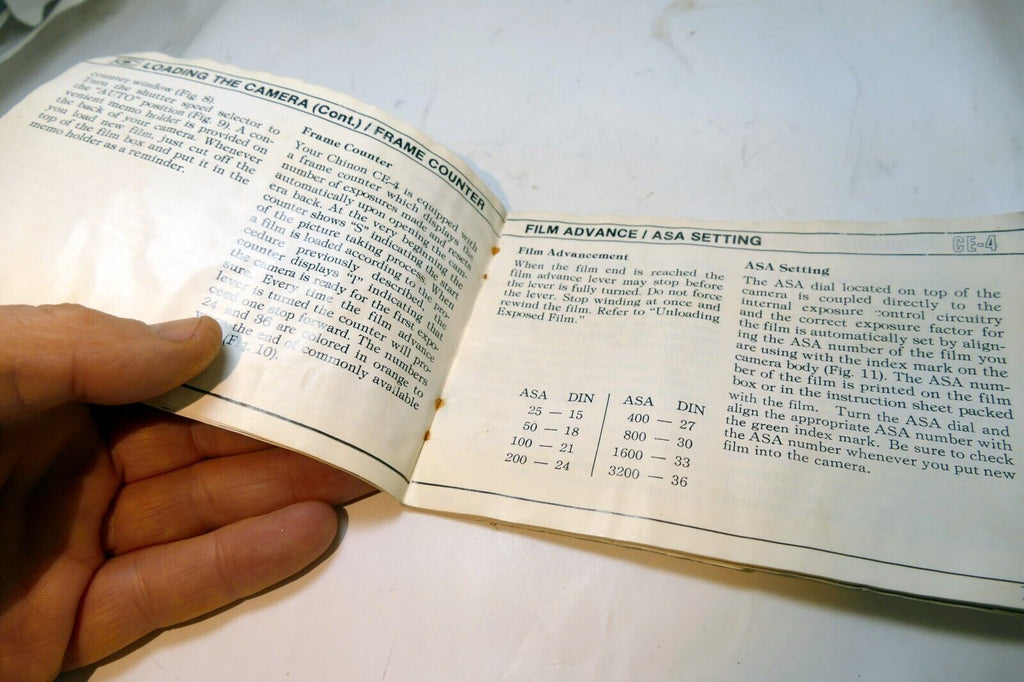 LOADING THE CAMERA (Cont.) / FRAME COUNTER
counter window (Fig. 8).
Turn the shutter speed selector to
the "AUTO" position (Fig. 9). A con-
venient memo holder is provided on
the back of your camera. Whenever
you load new film, just cut off the
top of the film box and put it in the
memo holder as a reminder.
Frame Counter
Your Chinon CE-4 is equipped with
a frame counter which displays the
number of exposures made and resets
automatically upon opening the cam-
era back. At the very beginning the
counter shows "S" indicating the start
of the picture taking process. When
a film is loaded according to the pro-
cedure previously described, the
counter displays "1" indicating that
the camera is ready for the first expo-
sure. Every time the film advance
lever is turned the counter will pro-
ceed one stop forward. The numbers
24 and 36 are colored in orange to
the end of commonly available
(Fig. 10).
FILM ADVANCE / ASA SETTING
CE-4
Film Advancement
When the film end is reached the
film advance lever may stop before
the lever is fully turned. Do not force
the lever. Stop winding at once and
rewind the film. Refer to "Unloading
Exposed Film."
ASA DIN
25 — 15
50 — 18
100 — 21
200 — 24
ASA DIN
400 — 27
800 — 30
1600 — 33
3200 — 36
ASA Setting
The ASA dial located on top of the
camera is coupled directly to the
internal exposure control circuitry
and the correct exposure factor for
the film is automatically set by align-
ing the ASA number of the film you
are using with the index mark on the
camera body (Fig. 11). The ASA num-
ber of the film is printed on the film
box or in the instruction sheet packed
with the film. Turn the ASA dial and
align the appropriate ASA number with
the green index mark. Be sure to check
the ASA number whenever you put new
film into the camera.